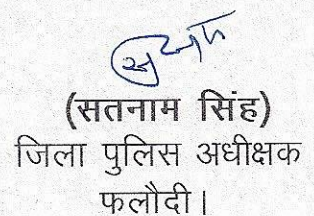 (सतनाम सिंह)
जिला पुलिस अधीक्षक
फलौदी।